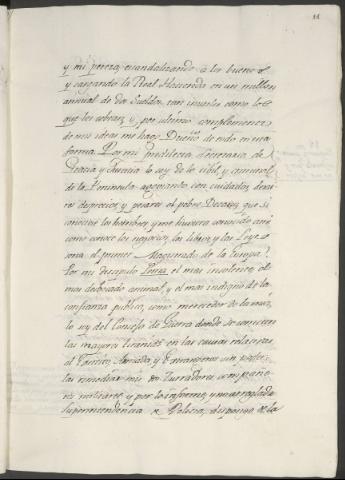 11
y mi pereza, escandalizando a los buenos
y cargando la Real Hacienda en un millon
annual de Sueldos, tan inutiles como los
que los cobran; y por ultimo complemento
de mis ideas me hago Dueño de todo en esta
forma. Por mi predilecta Secretaria de
Gracia y Justicia lo soy de lo civil, y criminal
de la Peninsula agoviando con cuidados, desai
res desprecios, y pesares al pobre Decano, que si
conociese los hombres, y me huviera conocido, asi
como conoce los negocios, los libros, y las Leyes
seria el primer Magistrado de la Europa.
Por mi discipulo el mas insolente, el
mas desbocado animal, y el mas indigno de la
confianza publica, como merecedor de la mia,
lo soy del Consejo de Guerra donde se cometen
las mayores tiranias en las causas relativas
al Exercito, Armada, y Extrangeros sin poder
las remediar mis compañe
ros militares, y por lo informe, y mal arreglada
Superintendencia de Policia, dispongo de la